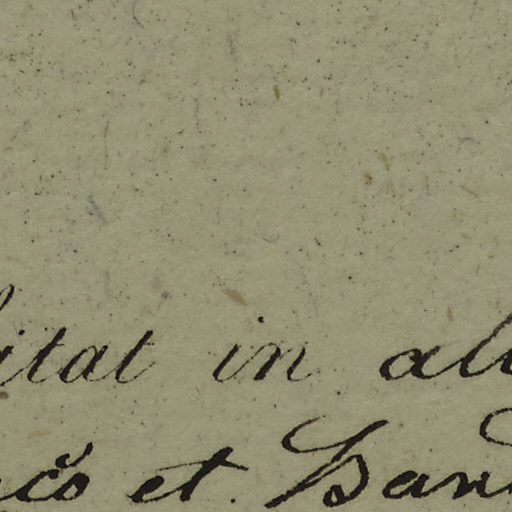 itat in al
čo et San